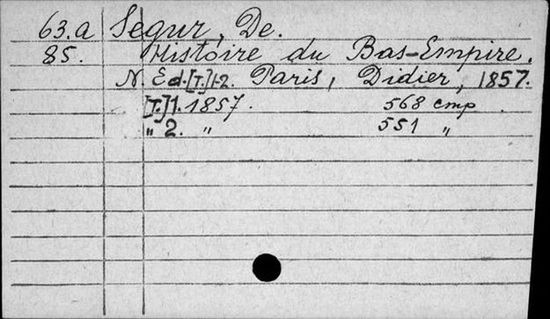 63.a Segur, De.
85. Histoire du Bas-Empire.
N. Ed.[T.]1-2. Paris, Didier, 1857.
[T.]1. 1857. 568 стр
„ 2. „ 551 „